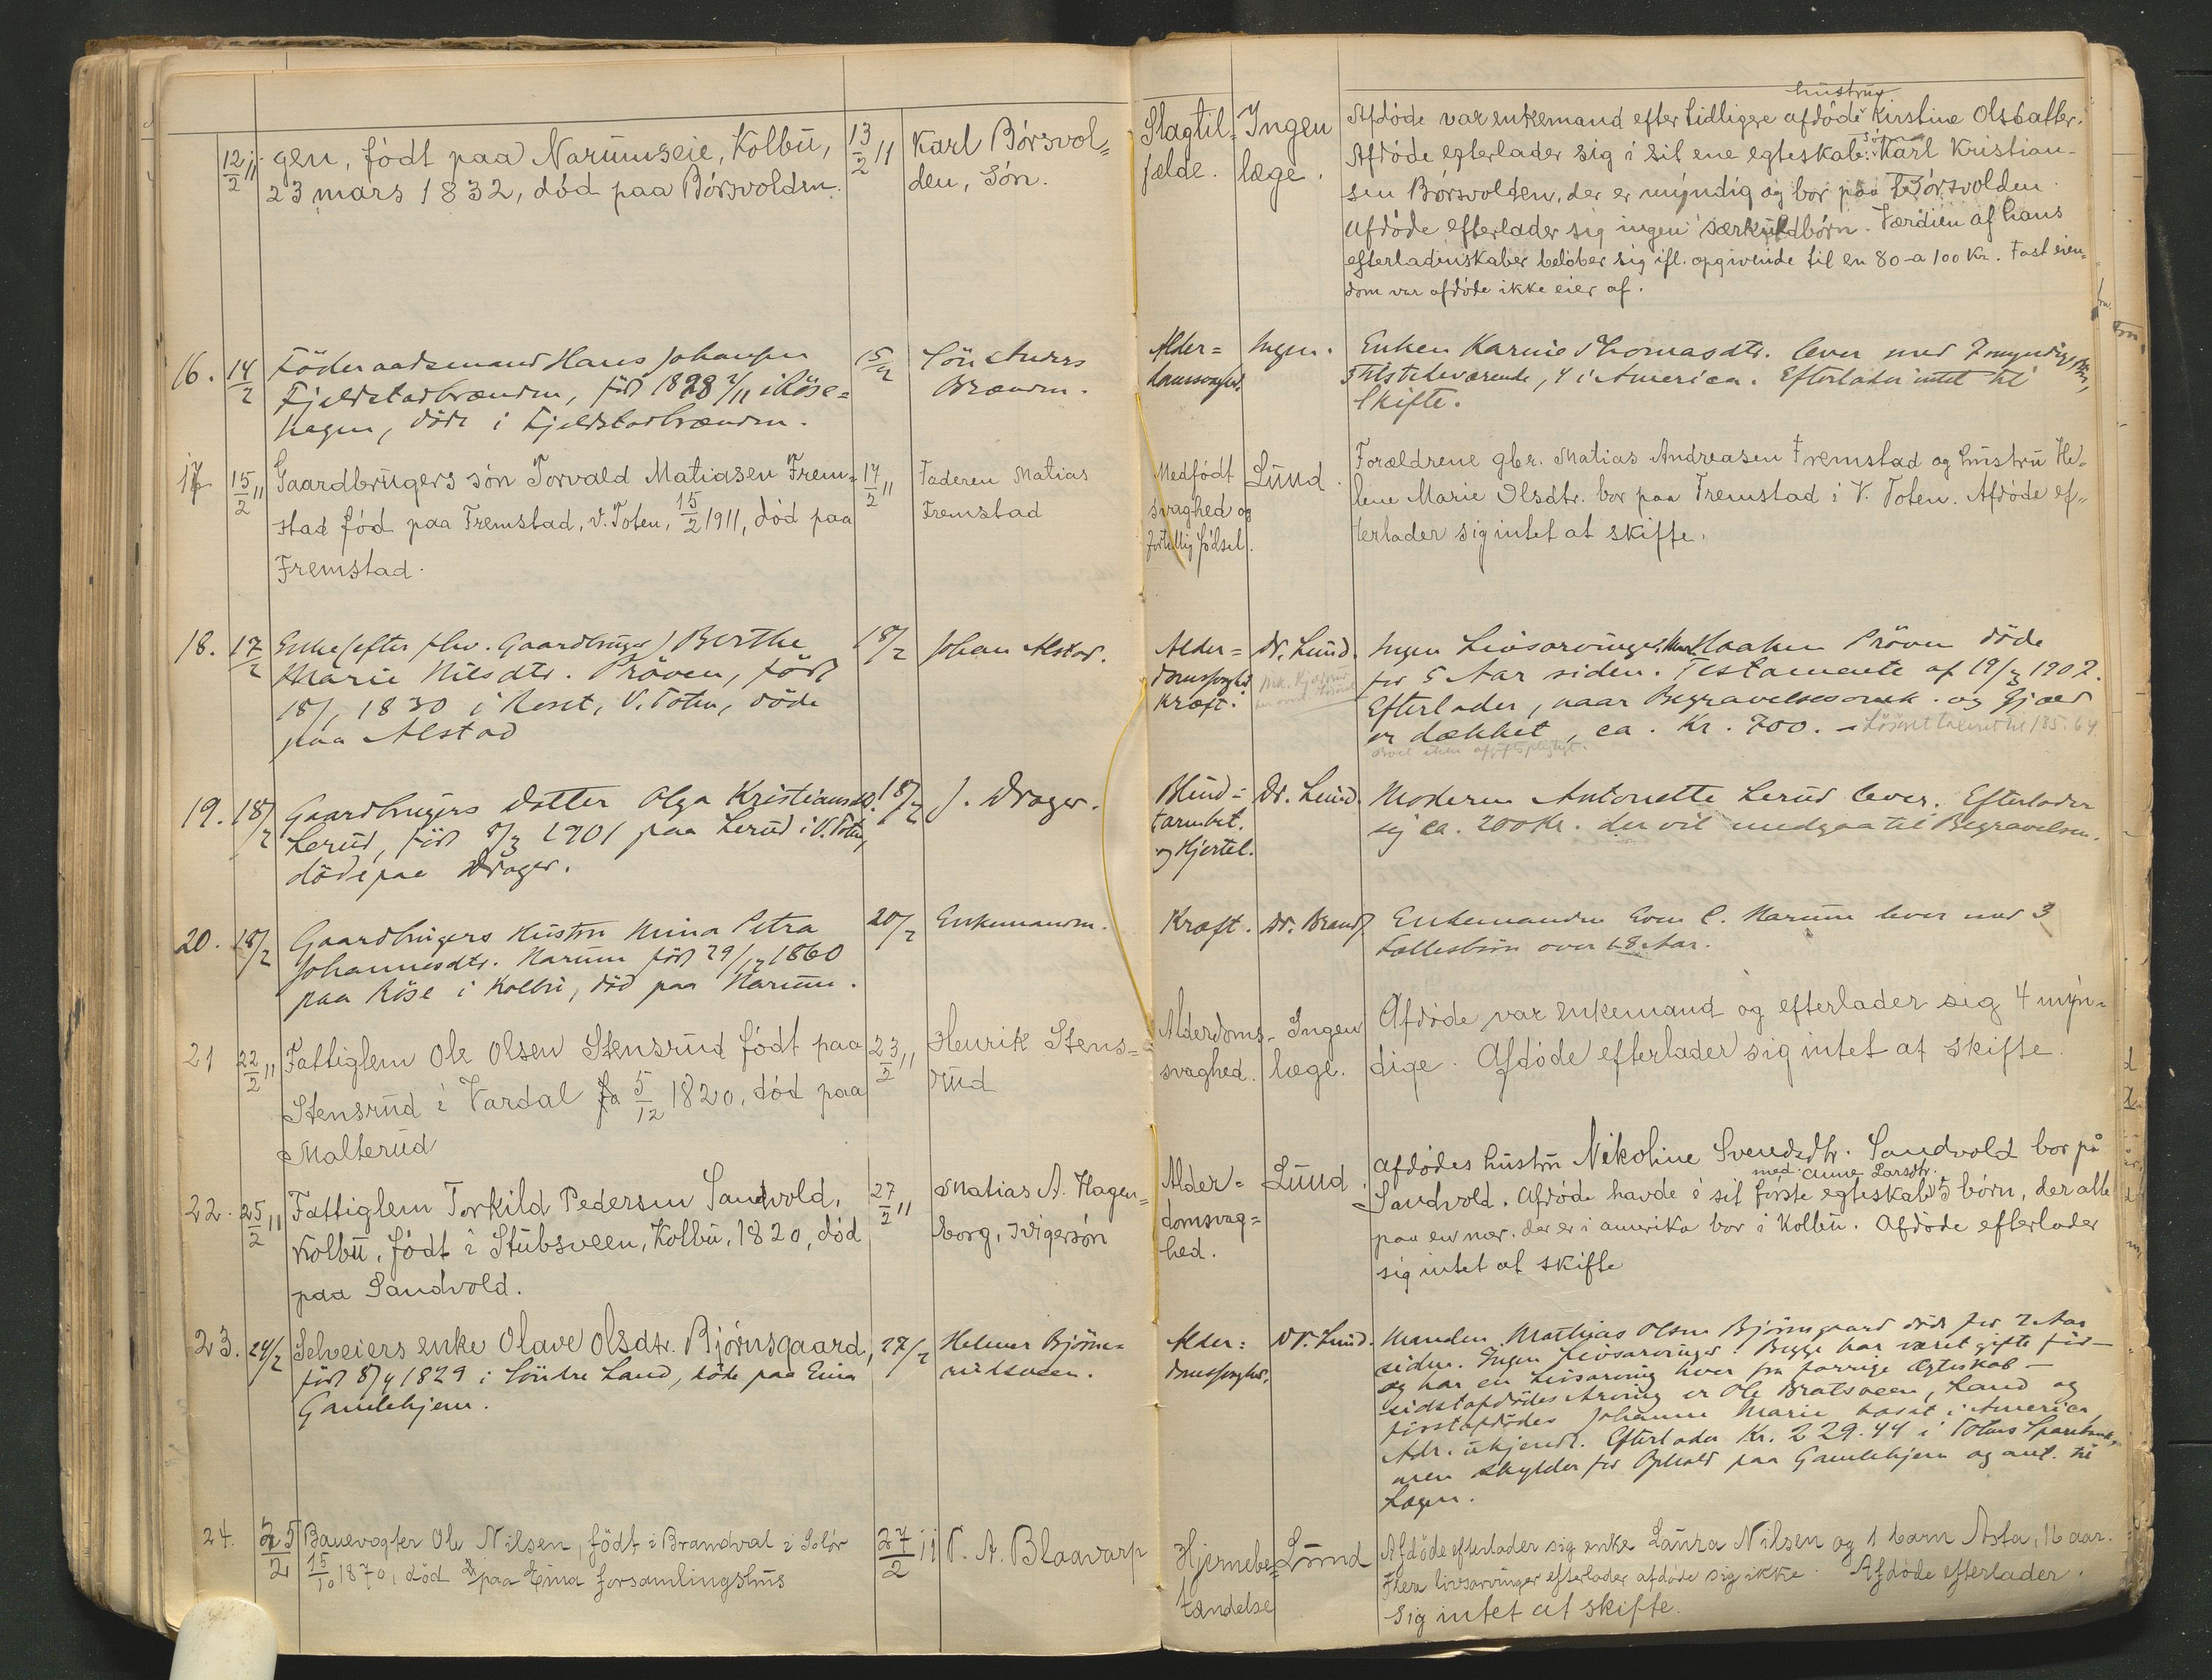 12/2 11. gen, født paa Narumseie, Kolbu, 13/2 11 Karl Børsvol=
23 mars 1832, død paa Børsvolden. den, søn.
Slagtil= Ingen
fælde. læge.
hustru
Afdøde var enkemand efter tidligere afdøde Kirstine Olsdatter.
Afdøde efterlader sig i sit ene egteskab: Karl Kristian-
sen Børsvolden, der er myndig og bor paa Børsvolden.
Afdøde efterlader sig ingen særkuldbørn. Værdien af hans
efterladenskaber beløber sig ifl. opgivende til en 80 a 100 Kr. Fast eien=
dom var afdøde ikke eier af.
16. 14/2 Föderaadsmand Hans Johansen 15/2 Sön Anders
Fjeldstadbrænden, föd 1828 2/11 i Röse= Brænden.
hagen, döde i Fjeldstadbrænden.
Alder= Ingen. Enken Karine Thomasdtr. lever med 7 myndige
3 tilstedeværende, 4 i America. Efterlader intet til
Skifte.
17 15/2 11 Gaardbrugers søn Torvald Matiasen Frem= 17/2 11 Faderen Matias
stad fød paa Fremstad, V. Toten, 15/2 1911, død paa Fremstad
Fremstad.
Medfødt Lund.
svaghed og
fortidlig fødsel.
Forældrene gbr. Matias Andreasen Fremstad og hustru He-
lene Marie Olsdtr. bor paa Fremstad i V. Toten. Afdøde ef=
terlader sig intet at skifte.
18. 17/2 Enke (efter fhv. Gaardbruger) Berthe 18/2 Johan Alstad.
Marie Nilsdtr. Pröven, född
18/1 1830 i Roset, V. Toten, döde
paa Alstad
Alder= Dr. Lund.
Kræft.
Ingen Livsarvinger. Haaken Pröven döde
for 5 Aar siden. Testamente af 19/3 1902.
Efterlader, naar Begravelsesomk. og Gjæld
er dækket, ca. Kr. 700. – Lösöret taxeret til 185.64
19. 18/2 Gaardbrugers datter Olga Kristiansdtr. 18/2 J. Drager.
Lerud, föd 8/3 1901 paa Lerud i V. Toten,
döde paa Drager.
Blind= Dr. Lund.
tarmbet.
og Hjertel.
Moderen Antonette Lerud lever. Efterlader
sig ca. 200 Kr. der vil medgaa til Begravelsen.
20. 18/2 Gaardbrugers Hustru Mina Petra 20/2 Enkemanden.
Johannesdtr. Narum föd 29/12 1860
paa Röse i Kolbu, död paa Narum.
Kræft. Dr. Brandt Enkemanden Even C. Narum lever med 3
Fællesbörn over 18 Aar.
21 22/2 11 Fattiglem Ole Olsen Stensrud født paa 23/2 11 Henrik Stens=
Stensrud i Vardal 5/12 1820, død paa rud
Malterud
Alderdoms- Ingen
svaghed. læge.
Afdøde var enkemand og efterlader sig 4 myn=
dige. Afdøde efterlader sig intet at skifte.
22. 25/2 11 Fattiglem Torkild Pedersen Sandvold, 27/2 11 Matias A. Hagen=
Kolbu, født i Stubsveen, Kolbu, 1820, død borg, svigersøn
paa Sandvold.
Alder= Lund.
domsvag=
hed.
Afdødes hustru Nikoline Svendsdtr. Sandvold bor på
med Anne Larsdtr.
Sandvold. Afdøde havde i sit første egteskab 5 børn, der alle
paa en nær, der er i amerika bor i Kolbu. Afdøde efterlader
sig intet at skifte
23. 24/2 Selveiers enke Olave Olsdtr. Bjørnsgaard, 27/2 Helmer Bjørne=
föd 8/4 1829 i Söndre Land, döde paa Eina rudsveen.
Gamlehjem.
Alder= Dr. Lund.
Manden Mathias Olsen Björnsgaard döde for 2 Aar
siden. Ingen Livsarvinger. Begge har været gifte för –
og har en Livsarving hver fra forrige Ægteskab –
sidstafdödes Arving er Ole Bratsveen, Land og
förstafdödes Johanne Marie bosat i America,
Adr. ukjendt. Efterlader Kr. 229.44 i Totens Sparebank,
men skylder for Ophold paa Gamlehjem og ant. til
Lægen.
24. 25/2 Banevogter Ole Nilsen, født i Brandval i Solør 27/2 11 P. A. Blaavarp
15/10 1870, død paa Eina forsamlingshus
Hjernebe= Lund
tændelse
Afdøde efterlader sig enke Laura Nilsen og 1 barn Asta, 16 aar.
Flere livsarvinger efterlader afdøde sig ikke. Afdøde efterlader
sig intet at skifte.